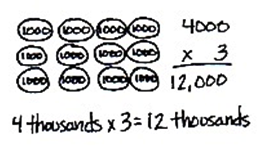 1000 1000 1000 1000 4000
1100 1000 1000 1000 x 3
1000 1000 1000 1000 12,000
4 thousands x 3 = 12 thousands